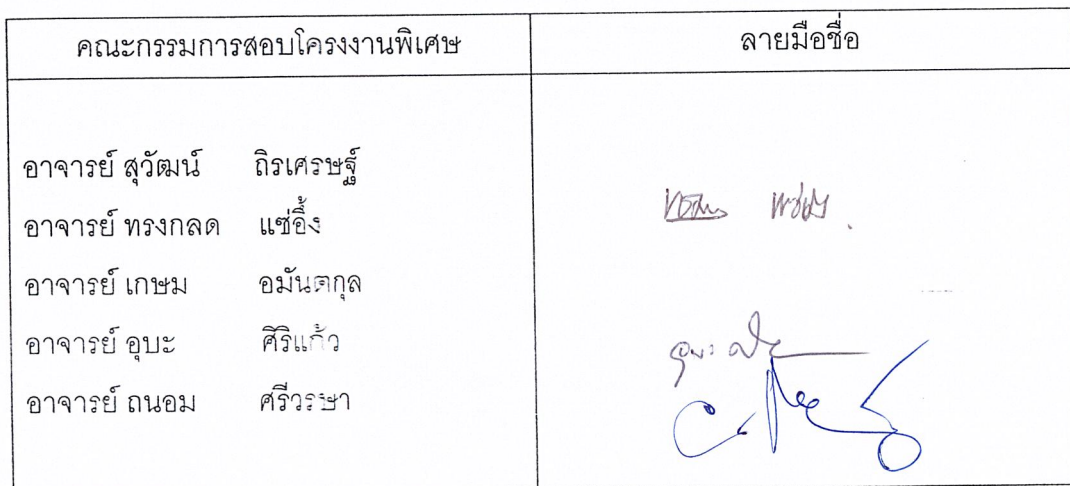 คณะกรรมการสอบโครงงานพิเศษ ลายมือชื่อ
อาจารย์ สุวัฒน์ ถิรเศรษฐ์
อาจารย์ ทรงกลด แซ่อึ้ง
อาจารย์ เกษม อมันตกุล
อาจารย์ อุบะ ศิริแก้ว
อาจารย์ ถนอม ศรีวรษา